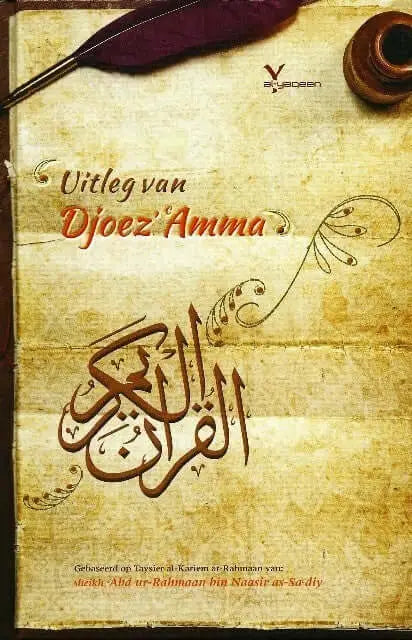 al-yaqeen
Uitleg van
Djoez' 'Amma
القرآن الكريم
Gebaseerd op Taysier al-Kariem ar-Rahmaan van:
sheikh 'Abd ur-Rahmaan bin Naasir as-Sa'diy